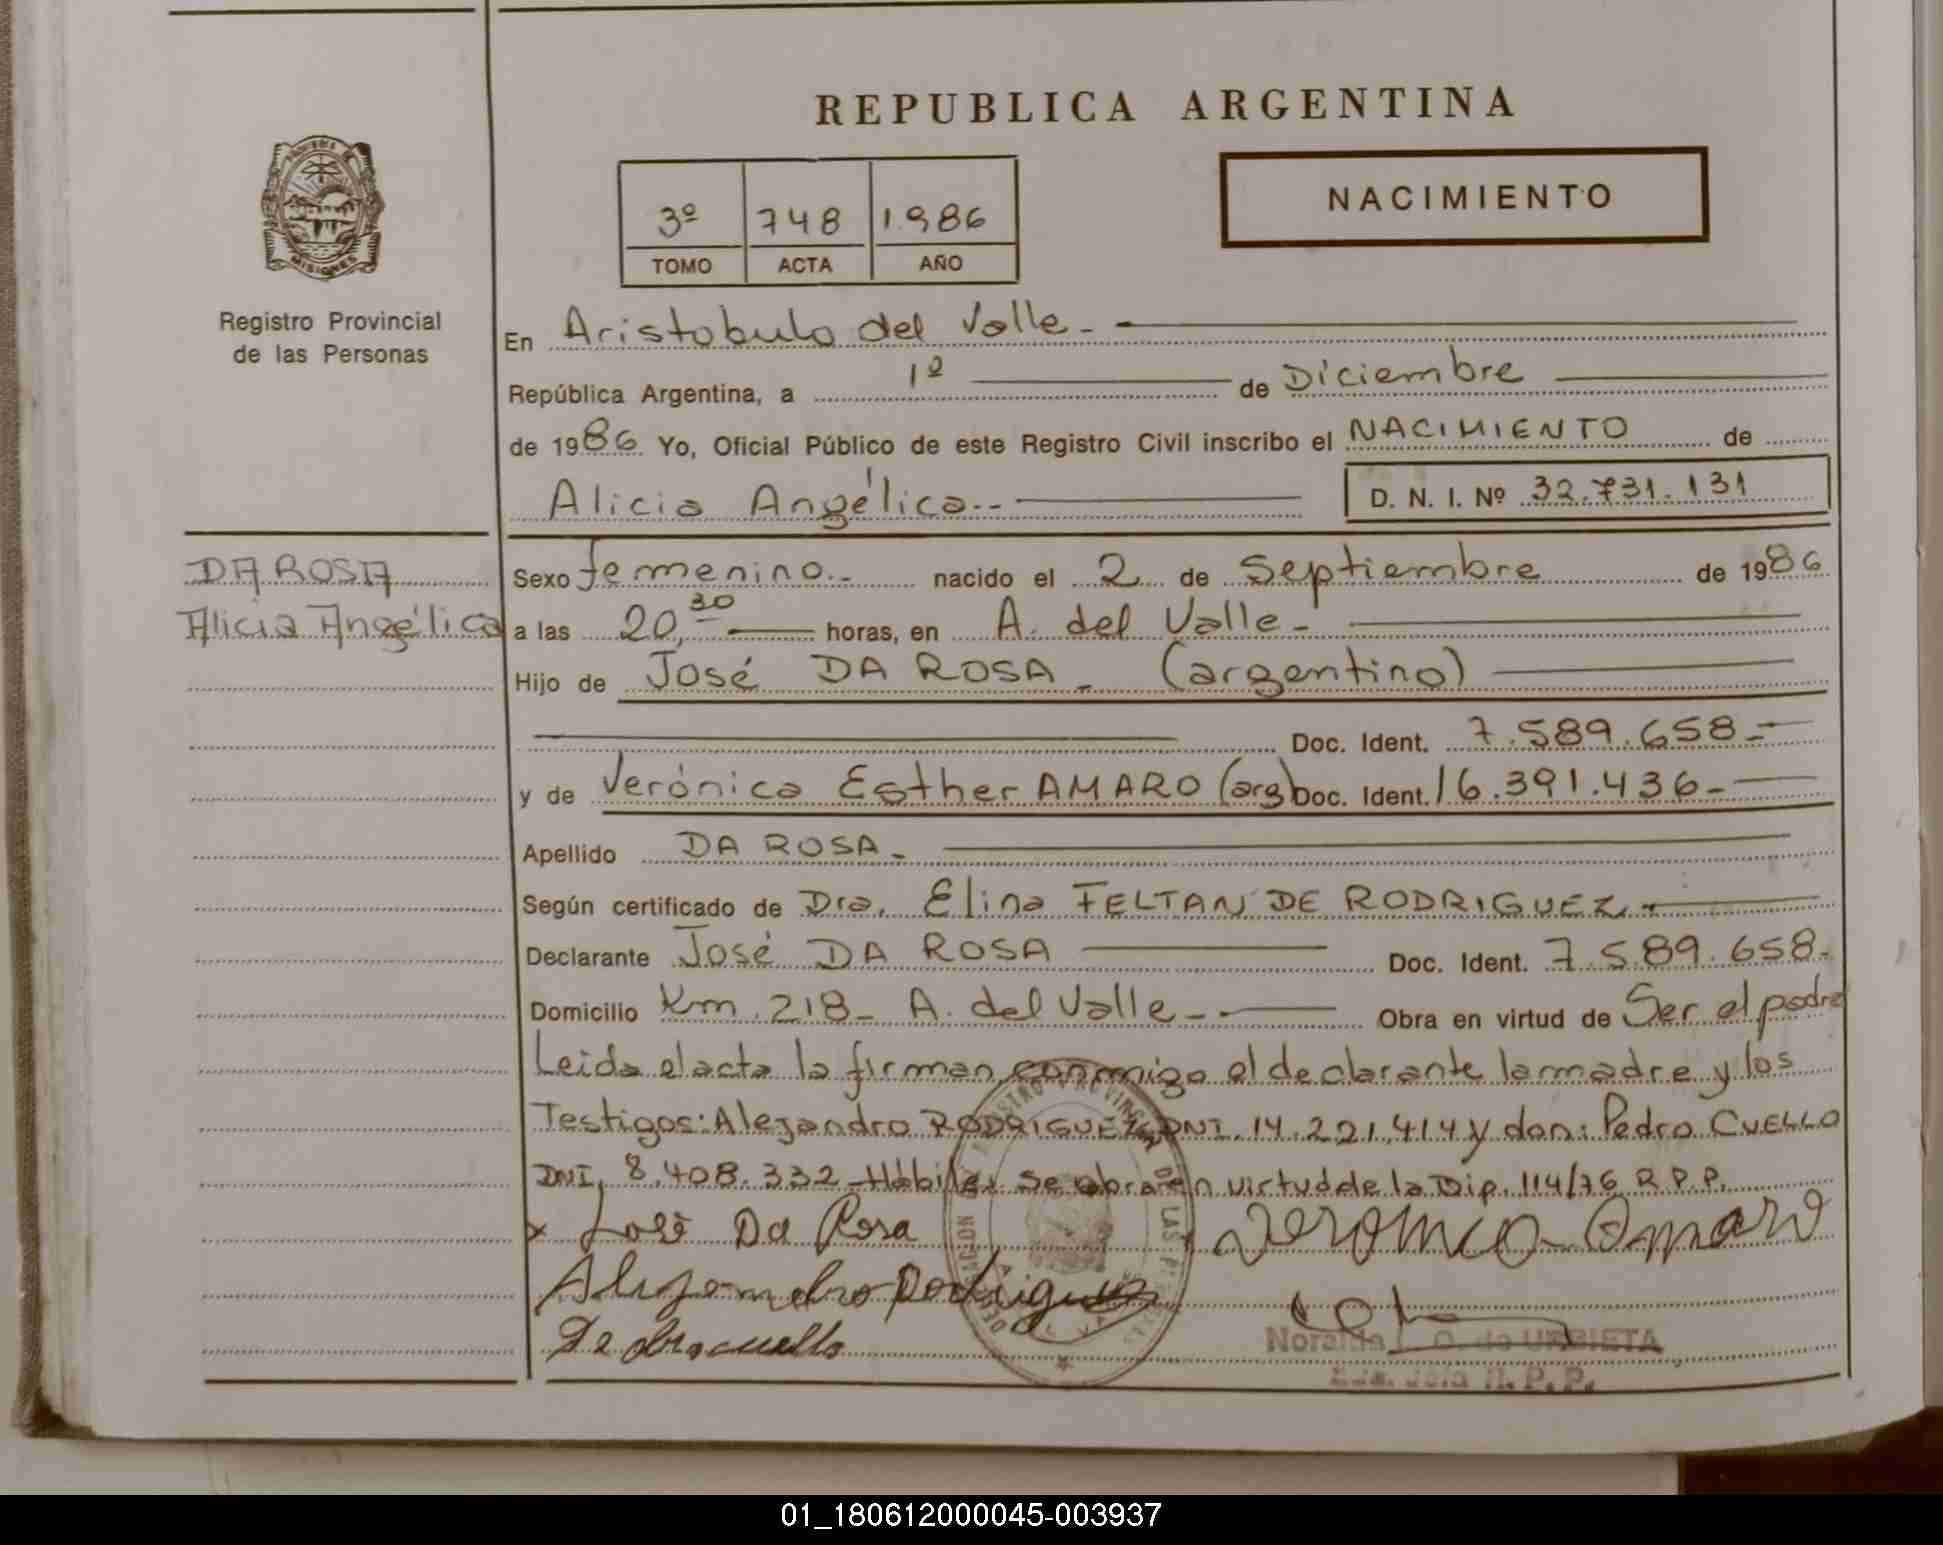 REPUBLICA ARGENTINA
NACIMIENTO
3º 748 1.986
TOMO ACTA AÑO
MISIONES
Registro Provincial
de las Personas
En Aristobulo del Valle.-
República Argentina, a 1º de Diciembre
de 1986. Yo, Oficial Público de este Registro Civil inscribo el NACIMIENTO de
Alicia Angélica.--
D. N. I. Nº 32.731.131
DA ROSA
Alicia Angélica
Sexo femenino.- nacido el 2 de Septiembre de 1986
a las 20,30 horas, en A. del Valle.-
Hijo de José DA ROSA.- (argentino)
Doc. Ident. 7.589.658.-
y de Verónica Esther AMARO (arg) Doc. Ident. 16.391.436.-
Apellido DA ROSA.-
Según certificado de Dra. Elina FELTAN DE RODRIGUEZ.-
Declarante José DA ROSA Doc. Ident. 7.589.658.-
Domicilio Km. 218- A. del Valle.-- Obra en virtud de Ser el padre
Leida el acta la firman conmigo el declarante la madre y los
Testigos: Alejandro RODRIGUEZ DNI. 14.221.414 y don: Pedro CUELLO
DNI. 8.408.332- Hábiles Se obra en virtud de la Dip. 114/76 R.P.P.
x José Da Rosa
Veronica Amaro
Alejandro Rodriguez
Pedro cuello
O. de URBIETA
R. P. P.
01_180612000045-003937